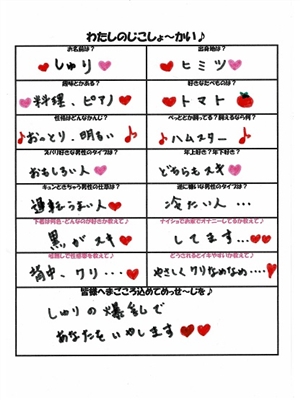 わたしのじこしょ〜かい♪
お名前は？
出身地は？
しゅり
ヒミツ
趣味とかある？
好きなたべものは？
料理、ピアノ
トマト
性格はどんなかんじ？
ぺっととか飼ってる？飼えるなら何？
おっとり、明るい
ハムスター
ズバリ好きな男性のタイプは？
年上好き？年下好き？
おもしろい人
どちらもスキ
キュンときちゃう男性の仕草は？
逆に嫌いな男性のタイプは？
運転うまい人
冷たい人…
下着は何色・どんなのが好きか教えて♪
ナイショでお家でオナニーしてるか教えて♪
黒がスキ
してます…
内緒で性感帯を教えて♪
どうされるとイキやすいか教えて♪
背中、クリ…
やさしくクリなめなめ…
皆様へまごころ込めてめっせ〜じを♪
しゅりの爆乳で
あなたをいやします